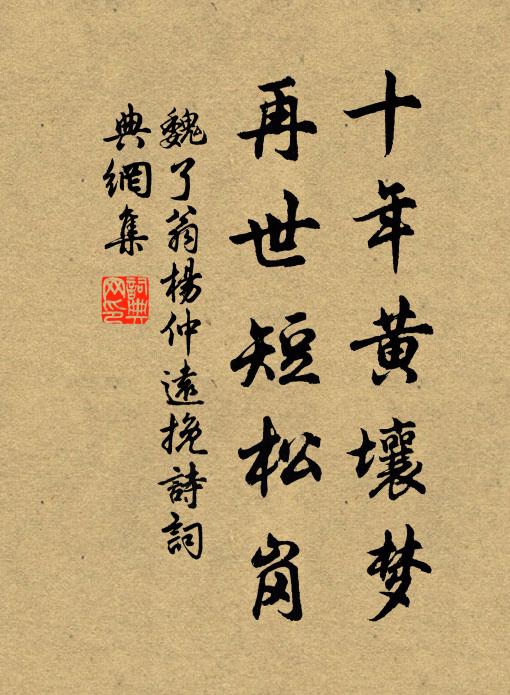 十年黄壤梦
再世短松岗
魏了翁楊仲遠挽詩詞
典網集
詞典
网印